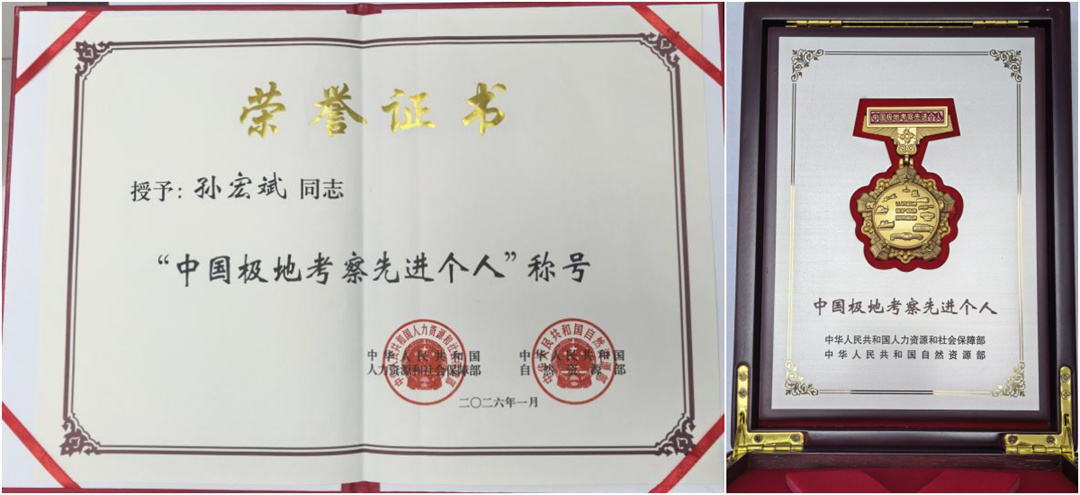 荣誉证书
授予：孙宏斌 同志
“中国极地考察先进个人”称号
中华人民共和国
人力资源和社会保障部
中华人民共和国
自然资源部
二〇二六年一月
中国极地考察先进个人
中国极地考察先进个人
中华人民共和国人力资源和社会保障部
中华人民共和国自然资源部